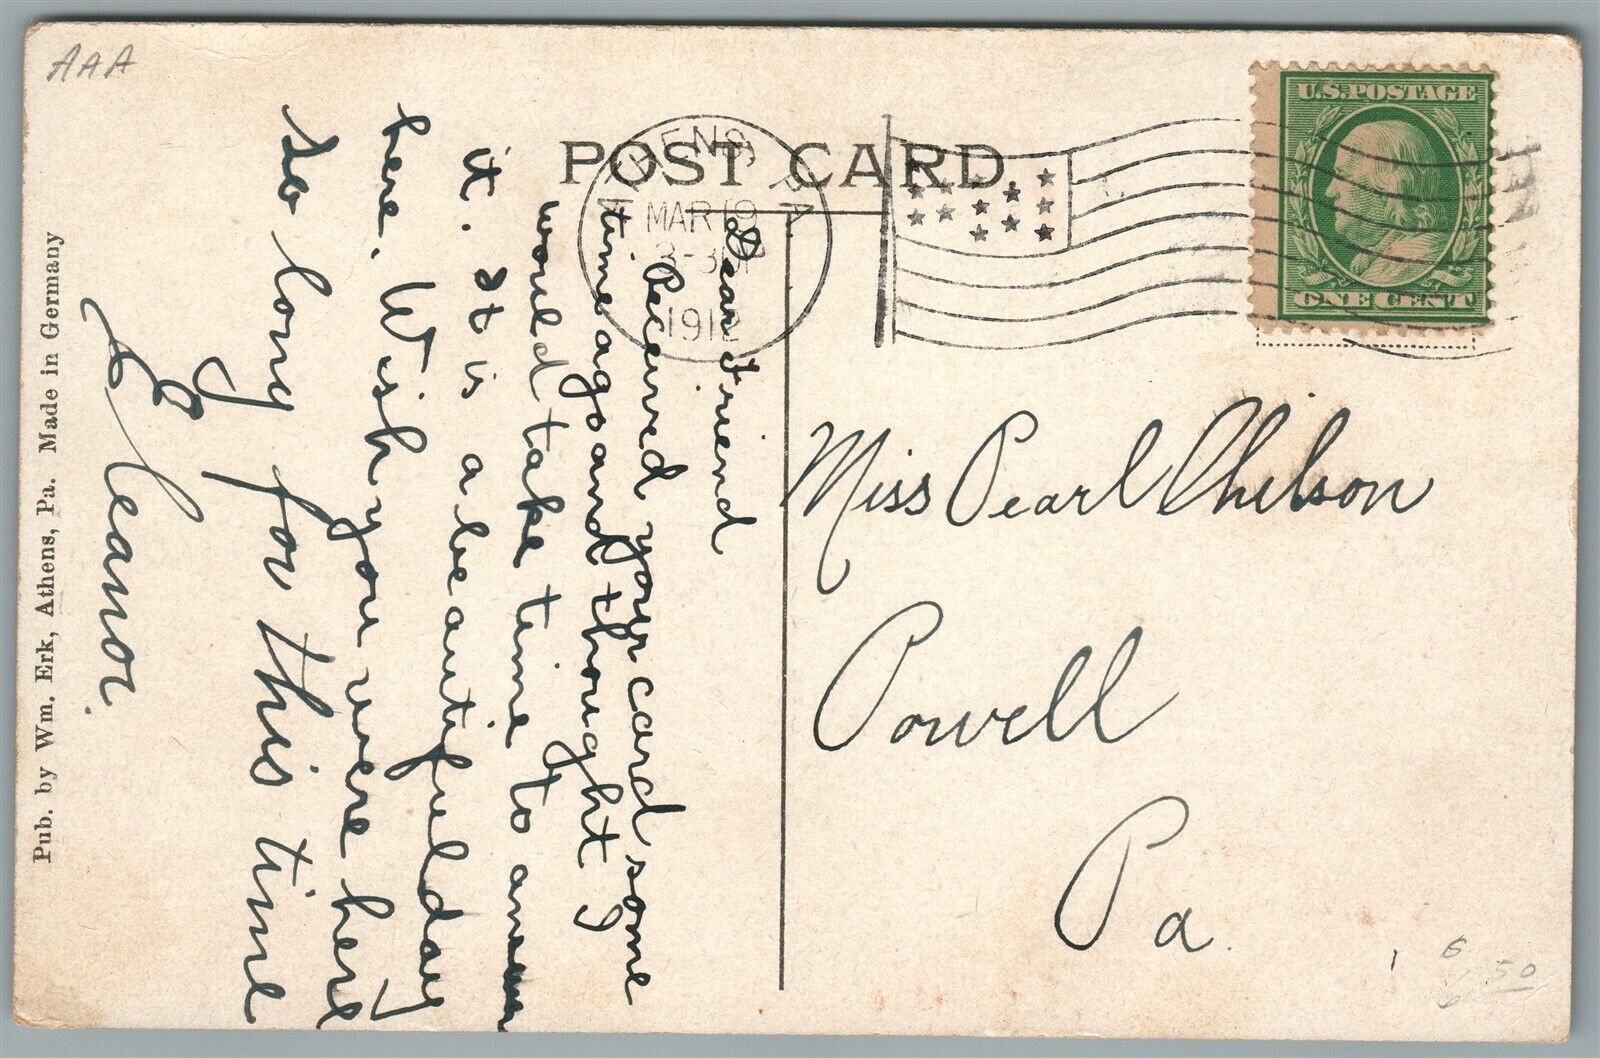 AAA
POST CARD
ATHENS, PA.
MAR 19
3-30P
1912
U.S. POSTAGE
ONE CENT
Dear Friend
Received your card some
time ago and thought I
would take time to answer
it. It is a beautiful day
here. Wish you were here
So long for this time
Eleanor.
Miss Pearl Chilson
Powell
Pa.
Pub. by Wm. Erk, Athens, Pa. Made in Germany
50